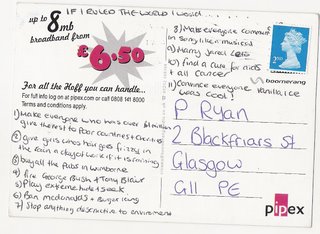 up to 8mb
broadband from
£6.50
IF I RULED THE WORLD I would...
For all the Hoff you can handle...
For full info log on at pipex.com or call 0808 141 8000
Terms and conditions apply.
1) Make everyone who was over billion
give the rest to poor countries + charities
2) give girls who's hair goes frizzy in
the rain a day of work if it is raining
3) buy all the pubs in wimborne
4) fire George Bush + Tony Blair
5) Play extreme hide + seek
6) Ban mcdonalds + burger king
7) Stop anything destructive to enviroment
8) Make everyone comunicate
in song like a musical
9) Marry Jared Leto
10) find a cure for aids
+ all cancer
11) Convince everyone vanilla ice
was cool!
2nd
boomerang
P Ryan
2 Blackfriars St
Glasgow
G11 PE
pipex